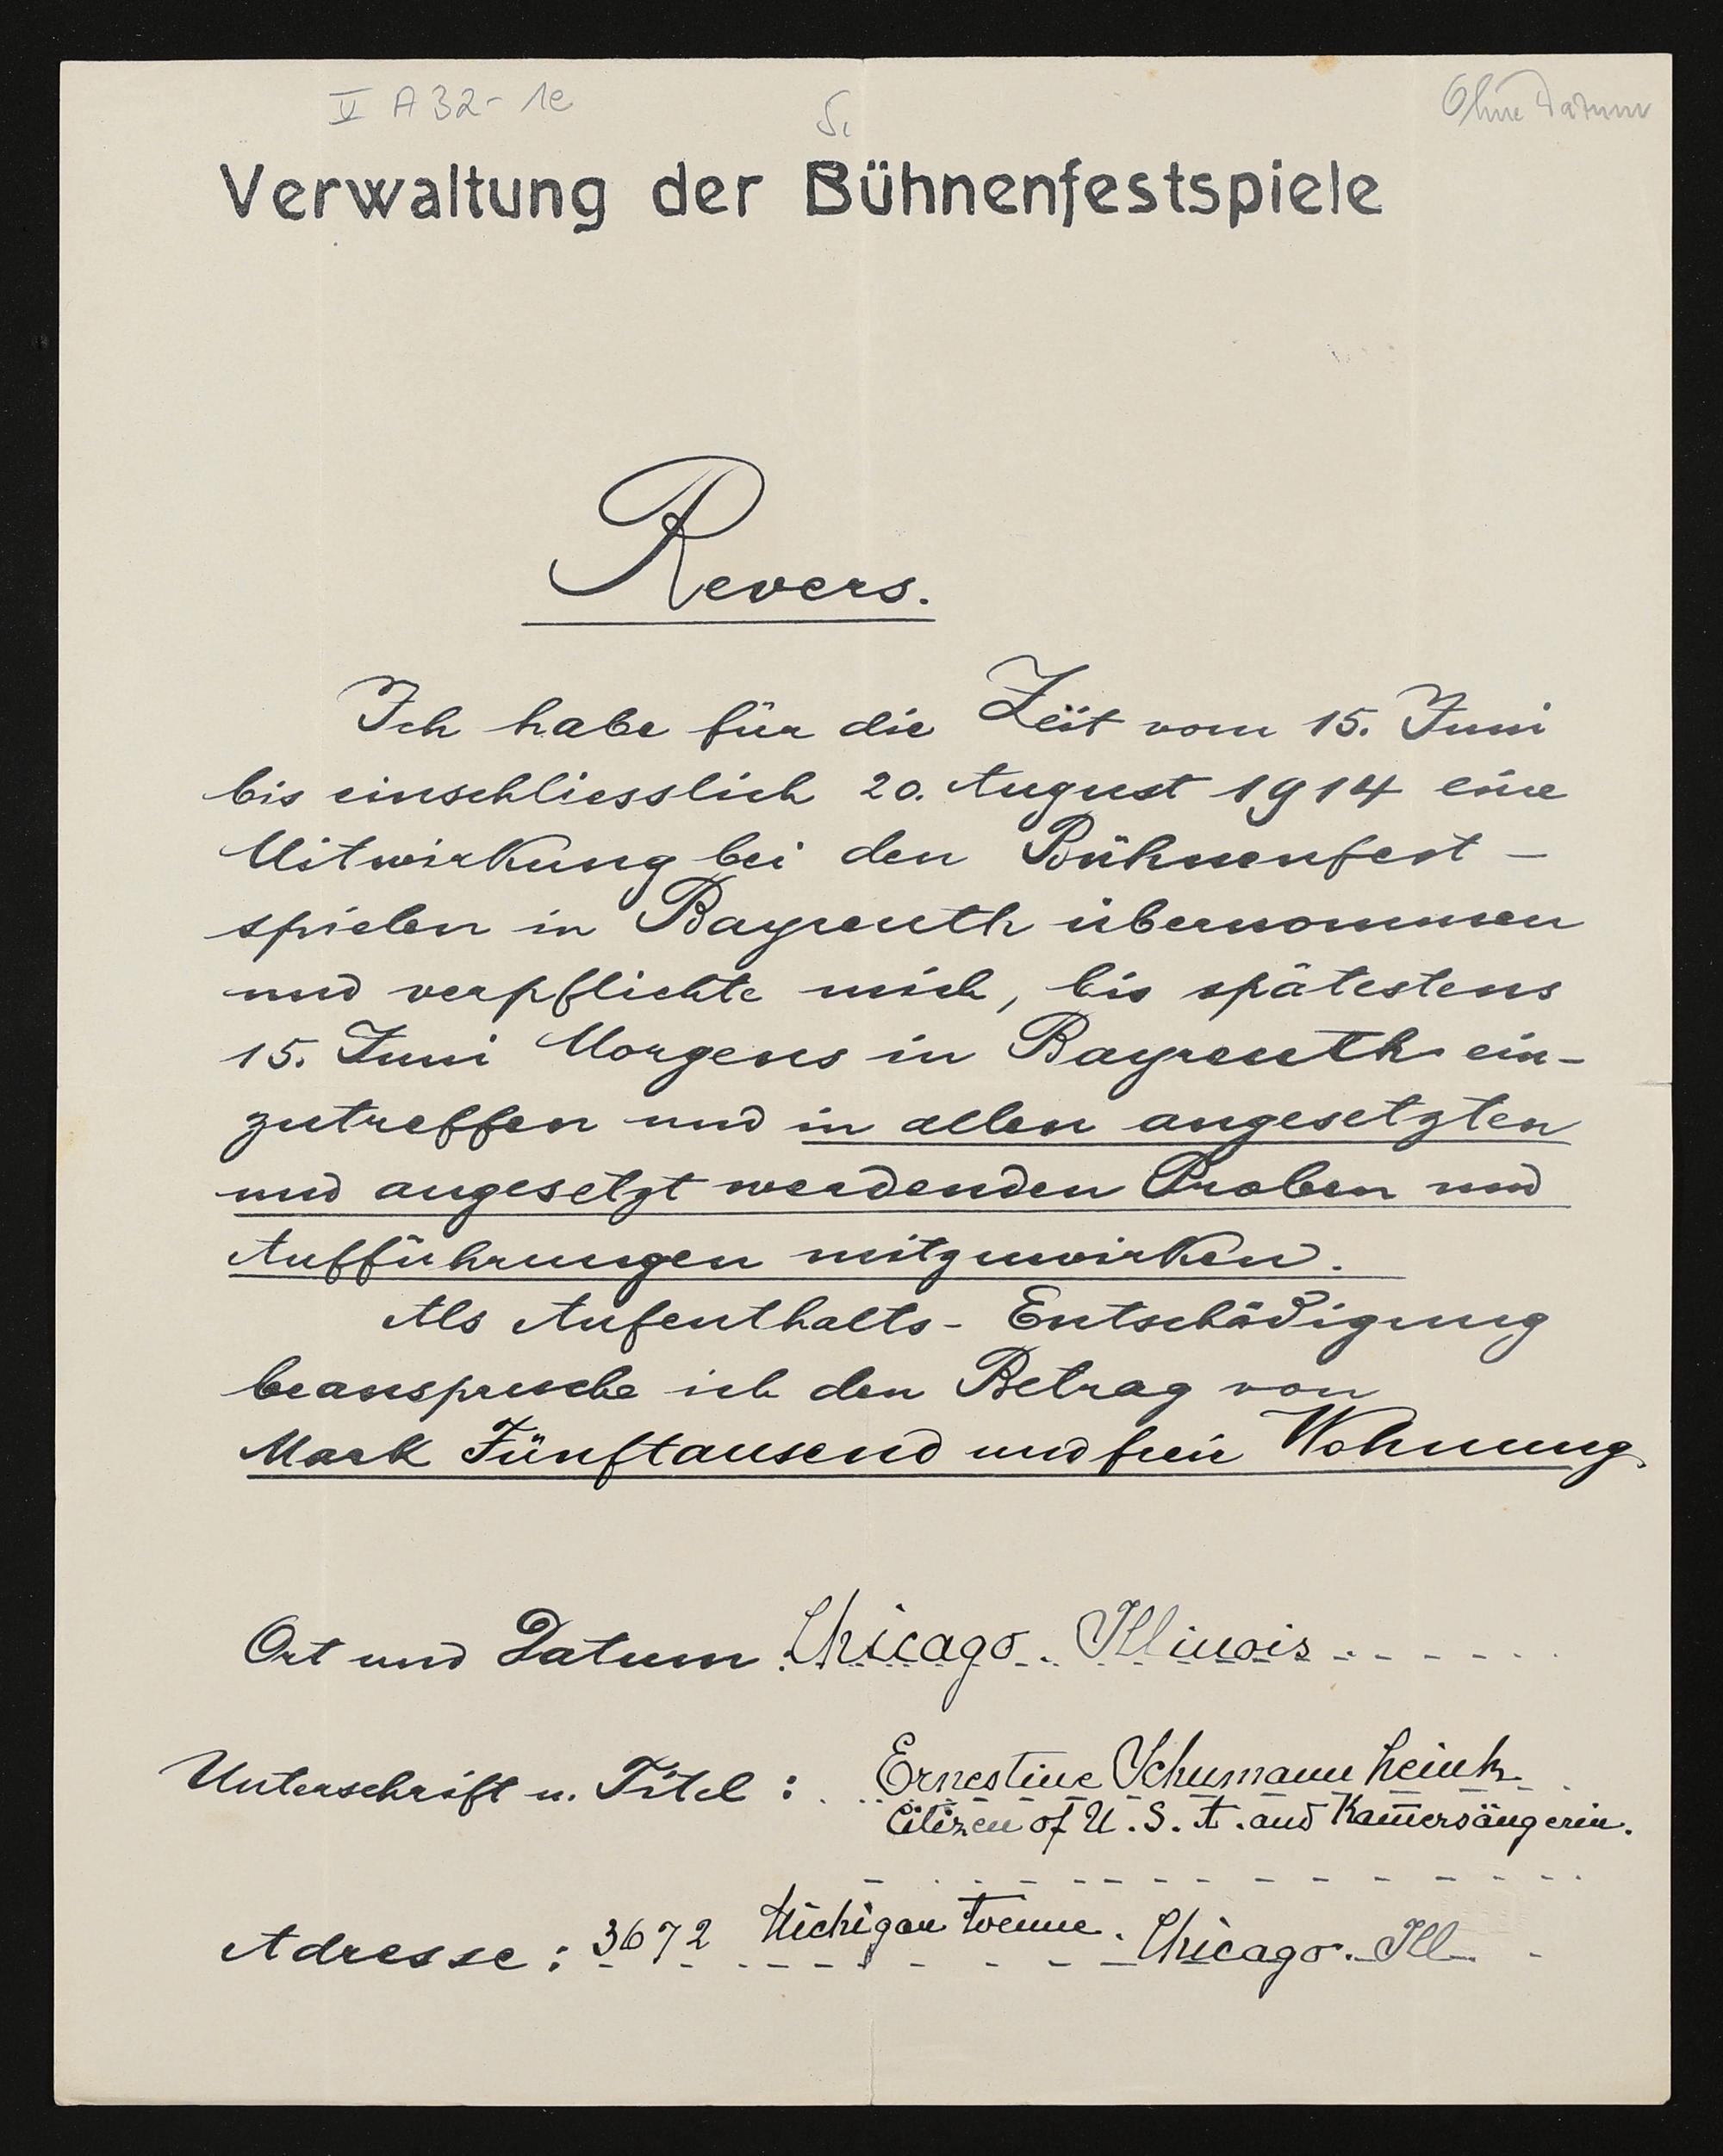 V A 32- 1e
Ohne Datum
Verwaltung der Bühnenfestspiele
Revers.
Ich habe für die Zeit vom 15. Juni
bis einschliesslich 20. August 1914 eine
Mitwirkung bei den Bühnenfest-
spielen in Bayreuth übernommen
und verpflichte mich, bis spätestens
15. Juni Morgens in Bayreuth ein-
zutreffen und in allen angesetzten
und angesetzt werdenden Proben und
Aufführungen mitzuwirken.
Als Aufenthalts-Entschädigung
beanspruche ich den Betrag von
Mark Fünftausend und freie Wohnung.
Ort und Datum Chicago. Illinois
Unterschrift u. Titel: Ernestine Schumann heink
Citizen of U. S. A. and Kam̄ersängerin.
Adresse: 3672 Michigan Avenue. Chicago. Ill